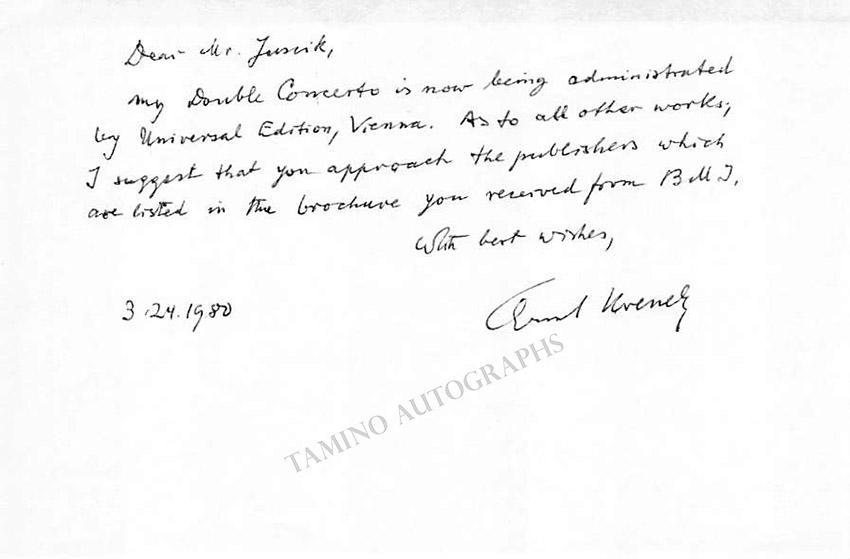 Dear Mr. Juscik,
my Double Concerto is now being administrated
by Universal Edition, Vienna. As to all other works,
I suggest that you approach the publishers which
are listed in the brochure you received from BMI.
With best wishes,
3.24.1980
Ernst Krenek
TAMINO AUTOGRAPHS